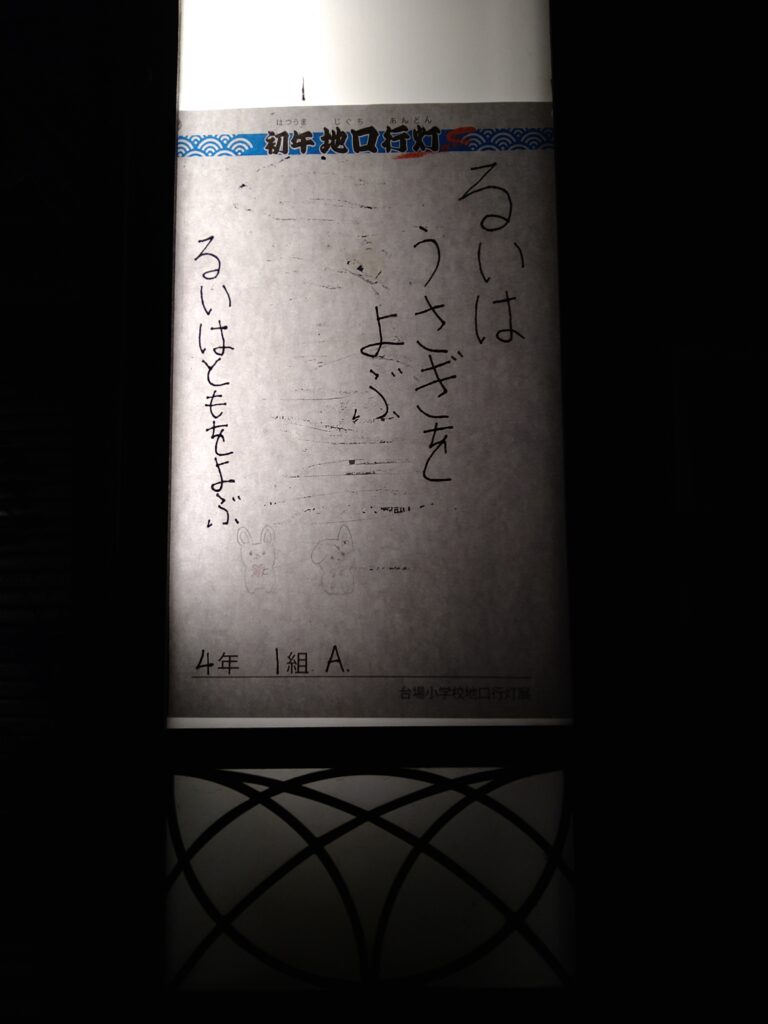 はつうま じぐち あんどん
初午 地口行灯
るいは
うさぎを
よぶ
るいはともをよぶ
4年 1組 A.
台場小学校地口行灯展